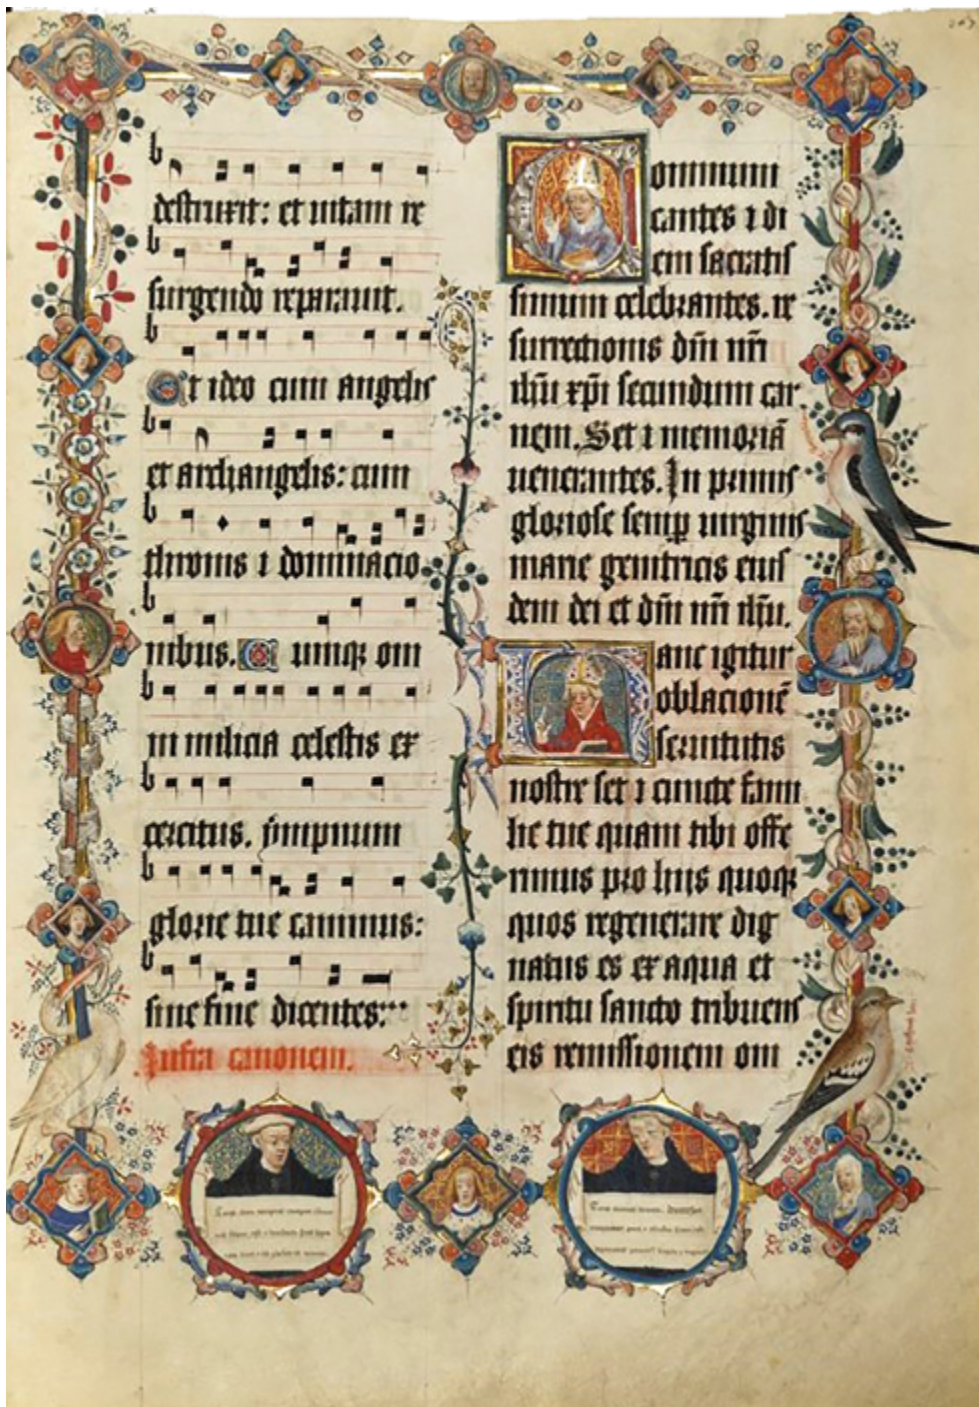 destruxit: et uitam re
surgendo reparauit.
Et ideo cum angelis
et archangelis: cum
thronis ⁊ dominacio
nibus. Cumqꝫ om
ni milicia celestis ex
cercitus. ympnum
glorie tue canimus:
sine fine dicentes:
Infra canonem.
Communi
cantes ⁊ di
em sacratis
simum celebrantes. re
surrectionis dn̄i nr̄i
ih̄u xp̄i secundum car
nem. Set ⁊ memoriā
uenerantes. In primis
gloriose semꝑ uirginis
marie genitricis eius
dem dei et dn̄i nr̄i ih̄u.
Hanc igitur
oblacionē
seruitutis
nostre set ⁊ cuncte fami
lie tue quam tibi offe
rimus pro hiis quoqꝫ
quos regenerare dig
natus es ex aqua et
spiritu sancto tribuens
eis remissionem om